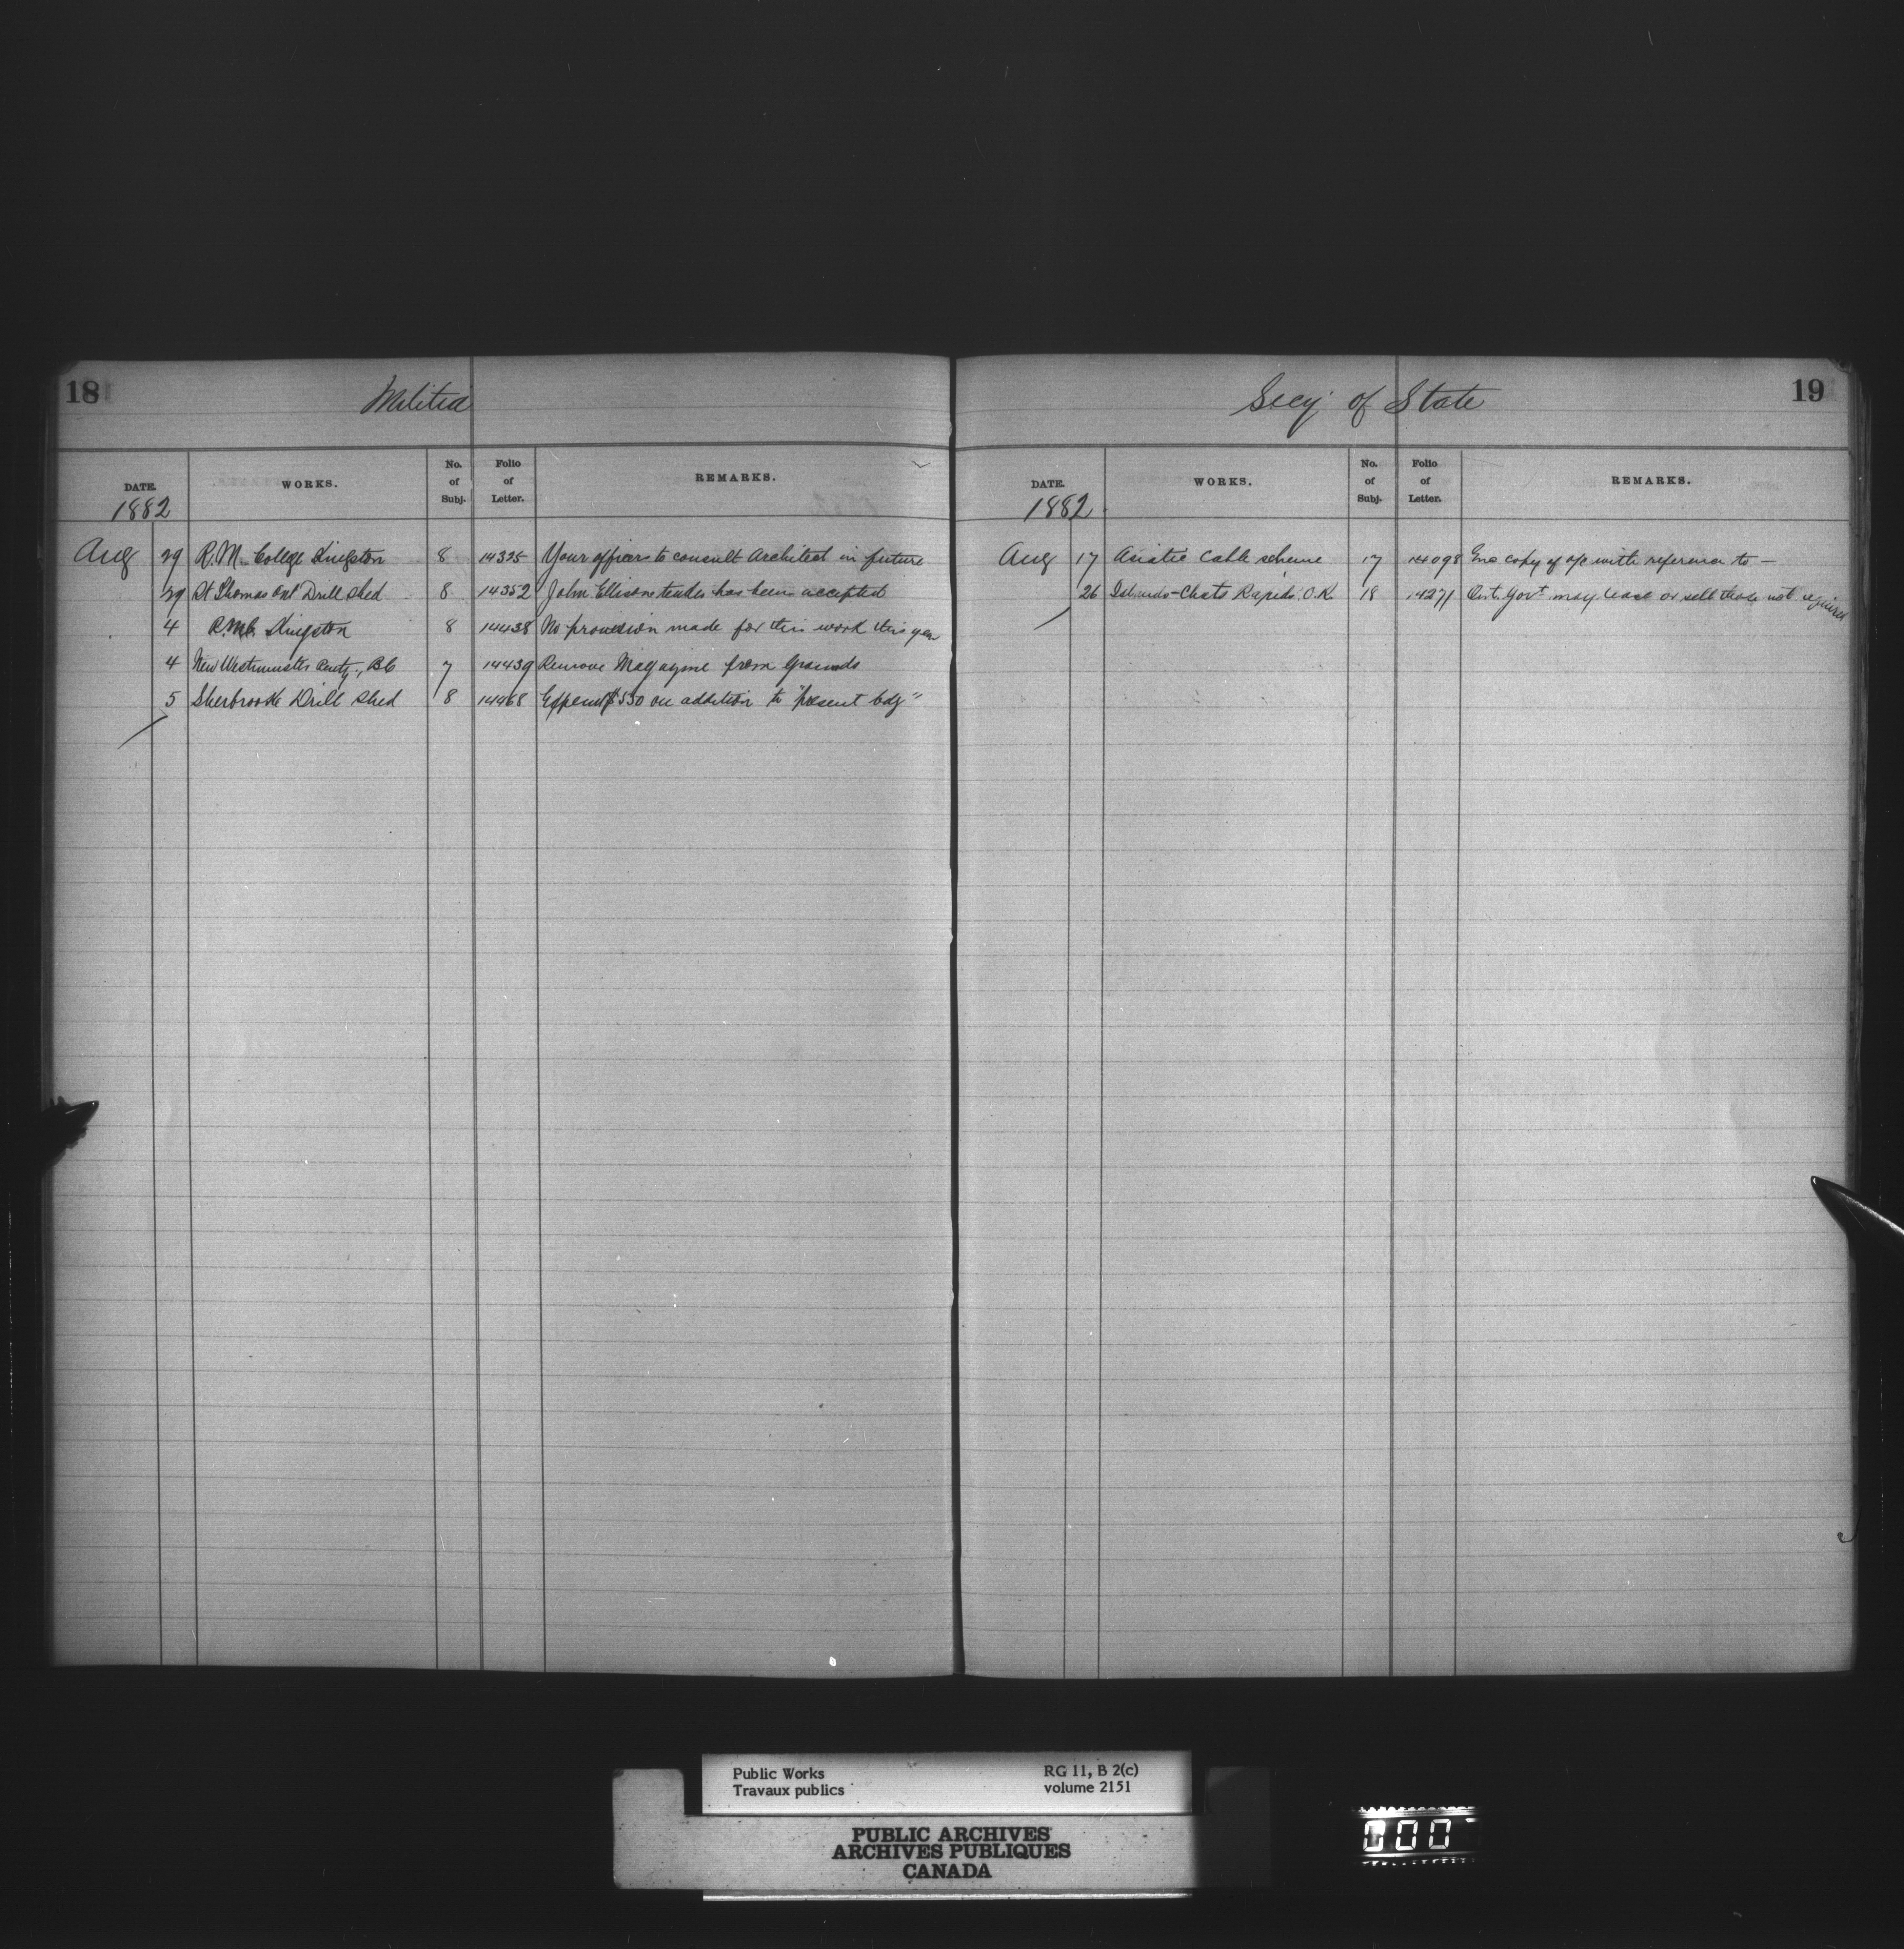 18
Militia
DATE. WORKS. No. of Subj. Folio of Letter. REMARKS.
1882
Aug 29 R. M. College Kingston 8 14325 Your officers to consult Architect in future
29 St Thomas Ont Drill Shed 8 14352 John Ellisons tender has been accepted
4 R.M.C. Kingston 8 14438 No provision made for this work this year
4 New Westminster Penty., BC 7 14439 Remove Magazine from Grounds
5 Sherbrooke Drill Shed 8 14468 Expend $550 on addition to "present bdg"
19
Secy of State
DATE. WORKS. No. of Subj. Folio of Letter. REMARKS.
1882
Aug 17 Asiatic Cable scheme 17 14098 copy of o/c with reference to —
26 Islands - Chats Rapids. O.R. 18 14271 Ont. Govt may lease or sell those not required
Public Works
Travaux publics
RG 11, B 2(c)
volume 2151
PUBLIC ARCHIVES
ARCHIVES PUBLIQUES
CANADA